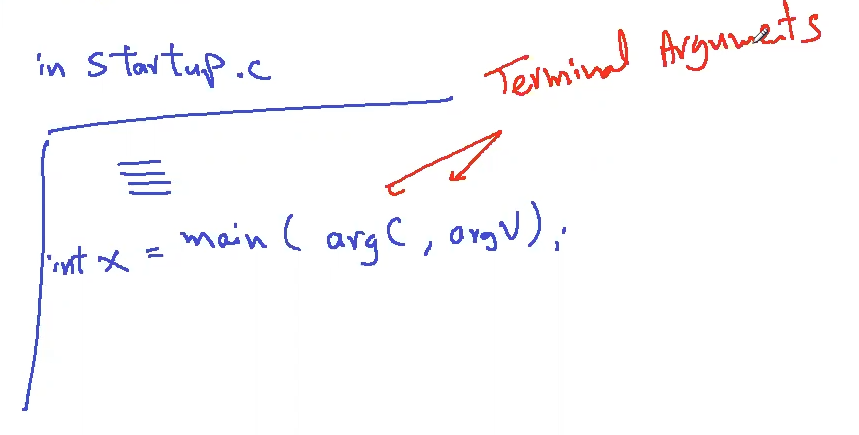 in startup.c
Terminal Arguments
int x = main ( argC , argV ) ;